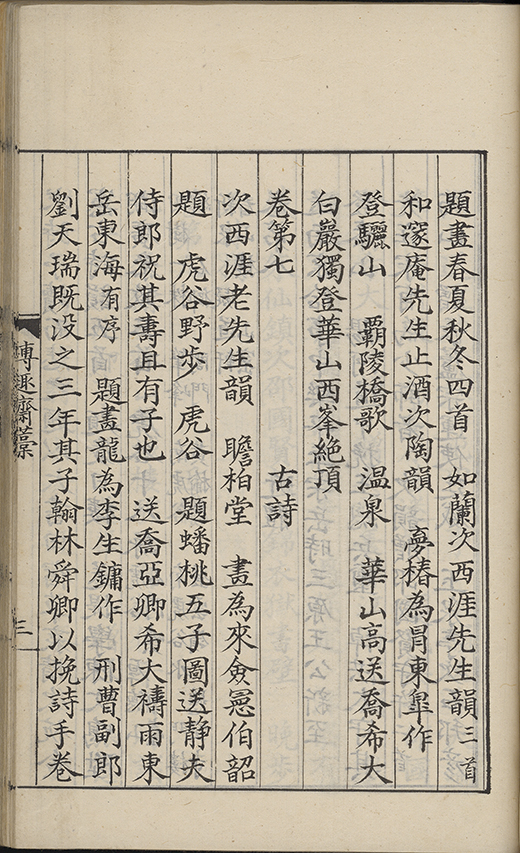 題畫春夏秋冬四首　如蘭次西涯先生韻三首
和邃庵先生止酒次陶韻　夢椿為冐東臯作
登驪山　覇陵橋歌　温泉　華山高送喬希大
白巖獨登華山西峯絶頂
卷第七　　　　　古詩
次西涯老先生韻　瞻柏堂　畫為來僉憲伯韶
題　虎谷野歩　虎谷　題蟠桃五子圖送静夫
侍郎祝其壽且有子也　送喬亞卿希大禱雨東
岳東海有序　題畫龍為李生鏞作　刑曹副郎
劉天瑞既没之三年其子翰林舜卿以挽詩手卷
博趣齋藳　三